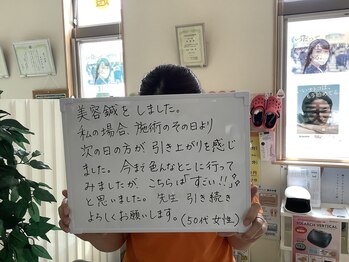 美容鍼をしました。
私の場合、施術のその日より
次の日の方が、引き上がりを感じ
ました。今まで色んなとこに行って
みましたが、こちらは「すごい!!」
と思いました。先生 引き続き
よろしくお願いします。(50代女性)